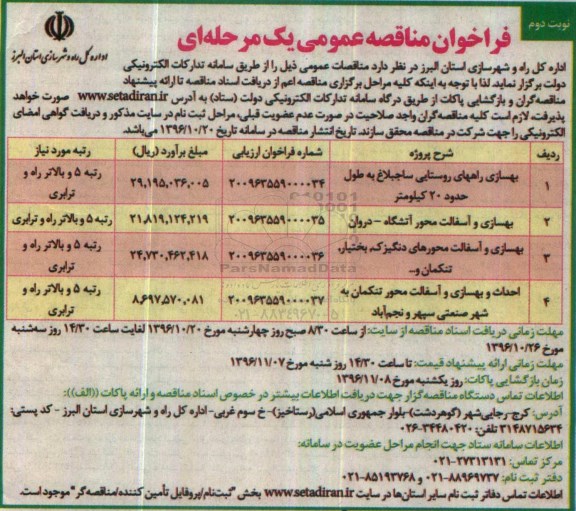 نوبت دوم
فراخوان مناقصه عمومی یک مرحله‌ای
اداره کل راه و شهرسازی استان البرز
اداره کل راه و شهرسازی استان البرز در نظر دارد مناقصات عمومی ذیل را از طریق سامانه تدارکات الکترونیکی
دولت برگزار نماید. لذا با توجه به اینکه کلیه مراحل برگزاری مناقصه اعم از دریافت اسناد مناقصه تا ارائه پیشنهاد
مناقصه‌گران و بازگشایی پاکات از طریق درگاه سامانه تدارکات الکترونیکی دولت (ستاد) به آدرس www.setadiran.ir صورت خواهد
پذیرفت، لازم است کلیه مناقصه‌گران واجد صلاحیت در صورت عدم عضویت قبلی، مراحل ثبت نام در سایت مذکور و دریافت گواهی امضای
الکترونیکی را جهت شرکت در مناقصه محقق سازند. تاریخ انتشار مناقصه در سامانه تاریخ ۱۳۹۶/۱۰/۲۰ می‌باشد.
ردیف شرح پروژه شماره فراخوان ارزیابی مبلغ برآورد (ریال) رتبه مورد نیاز
۱ بهسازی راههای روستایی ساجبلاغ به طول حدود ۲۰ کیلومتر ۲۰۰۹۶۳۵۵۹۰۰۰۰۳۴ ۲۹,۱۹۵,۰۳۶,۰۰۵ رتبه ۵ و بالاتر راه و ترابری
۲ بهسازی و آسفالت محور آتشگاه - دروان ۲۰۰۹۶۳۵۵۹۰۰۰۰۳۵ ۲۱,۸۱۹,۱۲۴,۲۱۹ رتبه ۵ و بالاتر راه و ترابری
۳ بهسازی و آسفالت محورهای دنگیزک، بختیار، تنکمان و... ۲۰۰۹۶۳۵۵۹۰۰۰۰۳۶ ۲۴,۷۳۰,۴۶۲,۴۱۸ رتبه ۵ و بالاتر راه و ترابری
۴ احداث و بهسازی و آسفالت محور تنکمان به شهر صنعتی سپهر و نجم‌آباد ۲۰۰۹۶۳۵۵۹۰۰۰۰۳۷ ۸,۶۹۷,۵۷۰,۰۸۱ رتبه ۵ و بالاتر راه و ترابری
ParsNamadData
۰۲۱-۸۸۳۴۹۶۷۰-۵
مهلت زمانی دریافت اسناد مناقصه از سایت: از ساعت ۸/۳۰ صبح روز چهارشنبه مورخ ۱۳۹۶/۱۰/۲۰ لغایت ساعت ۱۴/۳۰ روز سه‌شنبه
مورخ ۱۳۹۶/۱۰/۲۶
مهلت زمانی ارائه پیشنهاد قیمت: تا ساعت ۱۴/۳۰ روز شنبه مورخ ۱۳۹۶/۱۱/۰۷
زمان بازگشایی پاکات: روز یکشنبه مورخ ۱۳۹۶/۱۱/۰۸
اطلاعات تماس دستگاه مناقصه‌گزار جهت دریافت اطلاعات بیشتر در خصوص اسناد مناقصه و ارائه پاکات ((الف)):
آدرس: کرج-رجایی‌شهر (گوهردشت)-بلوار جمهوری اسلامی(رستاخیز)- خ سوم غربی- اداره کل راه و شهرسازی استان البرز - کد پستی:
۳۱۴۸۷۱۵۶۳۴ تلفن: ۳۴۴۸۰۴۲۰-۰۲۶
اطلاعات سامانه ستاد جهت انجام مراحل عضویت در سامانه:
مرکز تماس: ۲۷۳۱۳۱۳۱-۰۲۱
دفتر ثبت نام: ۸۸۹۶۹۷۳۷-۰۲۱ و ۸۵۱۹۳۷۶۸-۰۲۱
اطلاعات تماس دفاتر ثبت نام سایر استان‌ها در سایت www.setadiran.ir بخش "ثبت‌نام/پروفایل تأمین کننده/مناقصه‌گر" موجود است.